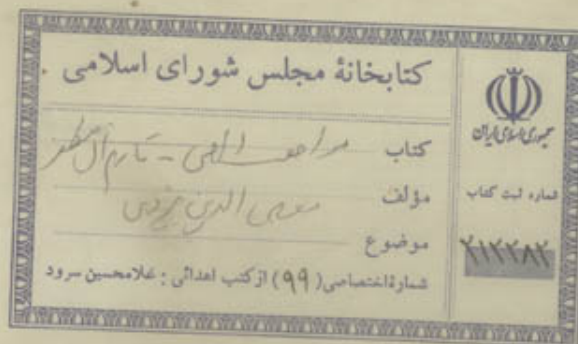 کتابخانهٔ مجلس شورای اسلامی
کتاب مواهب الهی - تاریخ آل مظفر
مؤلف معین الدین یزدی
موضوع
شمارهٔ اختصاصی (۹۹) از کتب اهدائی : غلامحسین سرود
جمهوری اسلامی ایران
شماره ثبت کتاب
۲۱۲۲۸۲